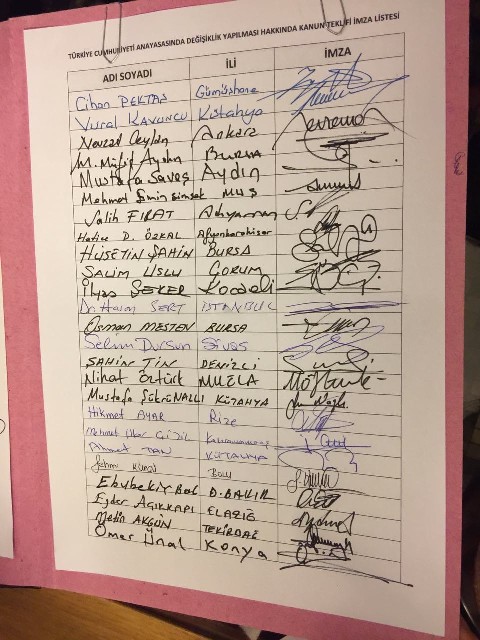 TÜRKİYE CUMHURİYETİ ANAYASASINDA DEĞİŞİKLİK YAPILMASI HAKKINDA KANUN TEKLİFİ İMZA LİSTESİ
ADI SOYADI İLİ İMZA
Cihan PEKTAŞ Gümüşhane
Vural KAVUNCU Kütahya
Nevzat Ceylan Ankara
M. Müfit Aydın BURSA
Mustafa Savaş Aydın
Mehmet Emin Şimşek MUŞ
Salih FIRAT Adıyaman
Hatice D. ÖZKAL Afyonkarahisar
HÜSEYİN ŞAHİN BURSA
SALİM USLU ÇORUM
İlyas ŞEKER Kocaeli
Dr. Hasan SERT İSTANBUL
Osman MESTEN BURSA
Selim Dursun Sivas
ŞAHİN TİN DENİZLİ
Nihat Öztürk MUĞLA
Mustafa ŞükrüNALLI KÜTAHYA
Hikmet AYAR Rize
Mehmet Kahramanmaraş
Ahmet TAN KÜTAHYA
BOLU
Ebubekir Bal D.BAKIR
Ejder AÇIKKAPI ELAZIĞ
Metin AKGÜN TEKİRDAĞ
Ömer Ünal Konya